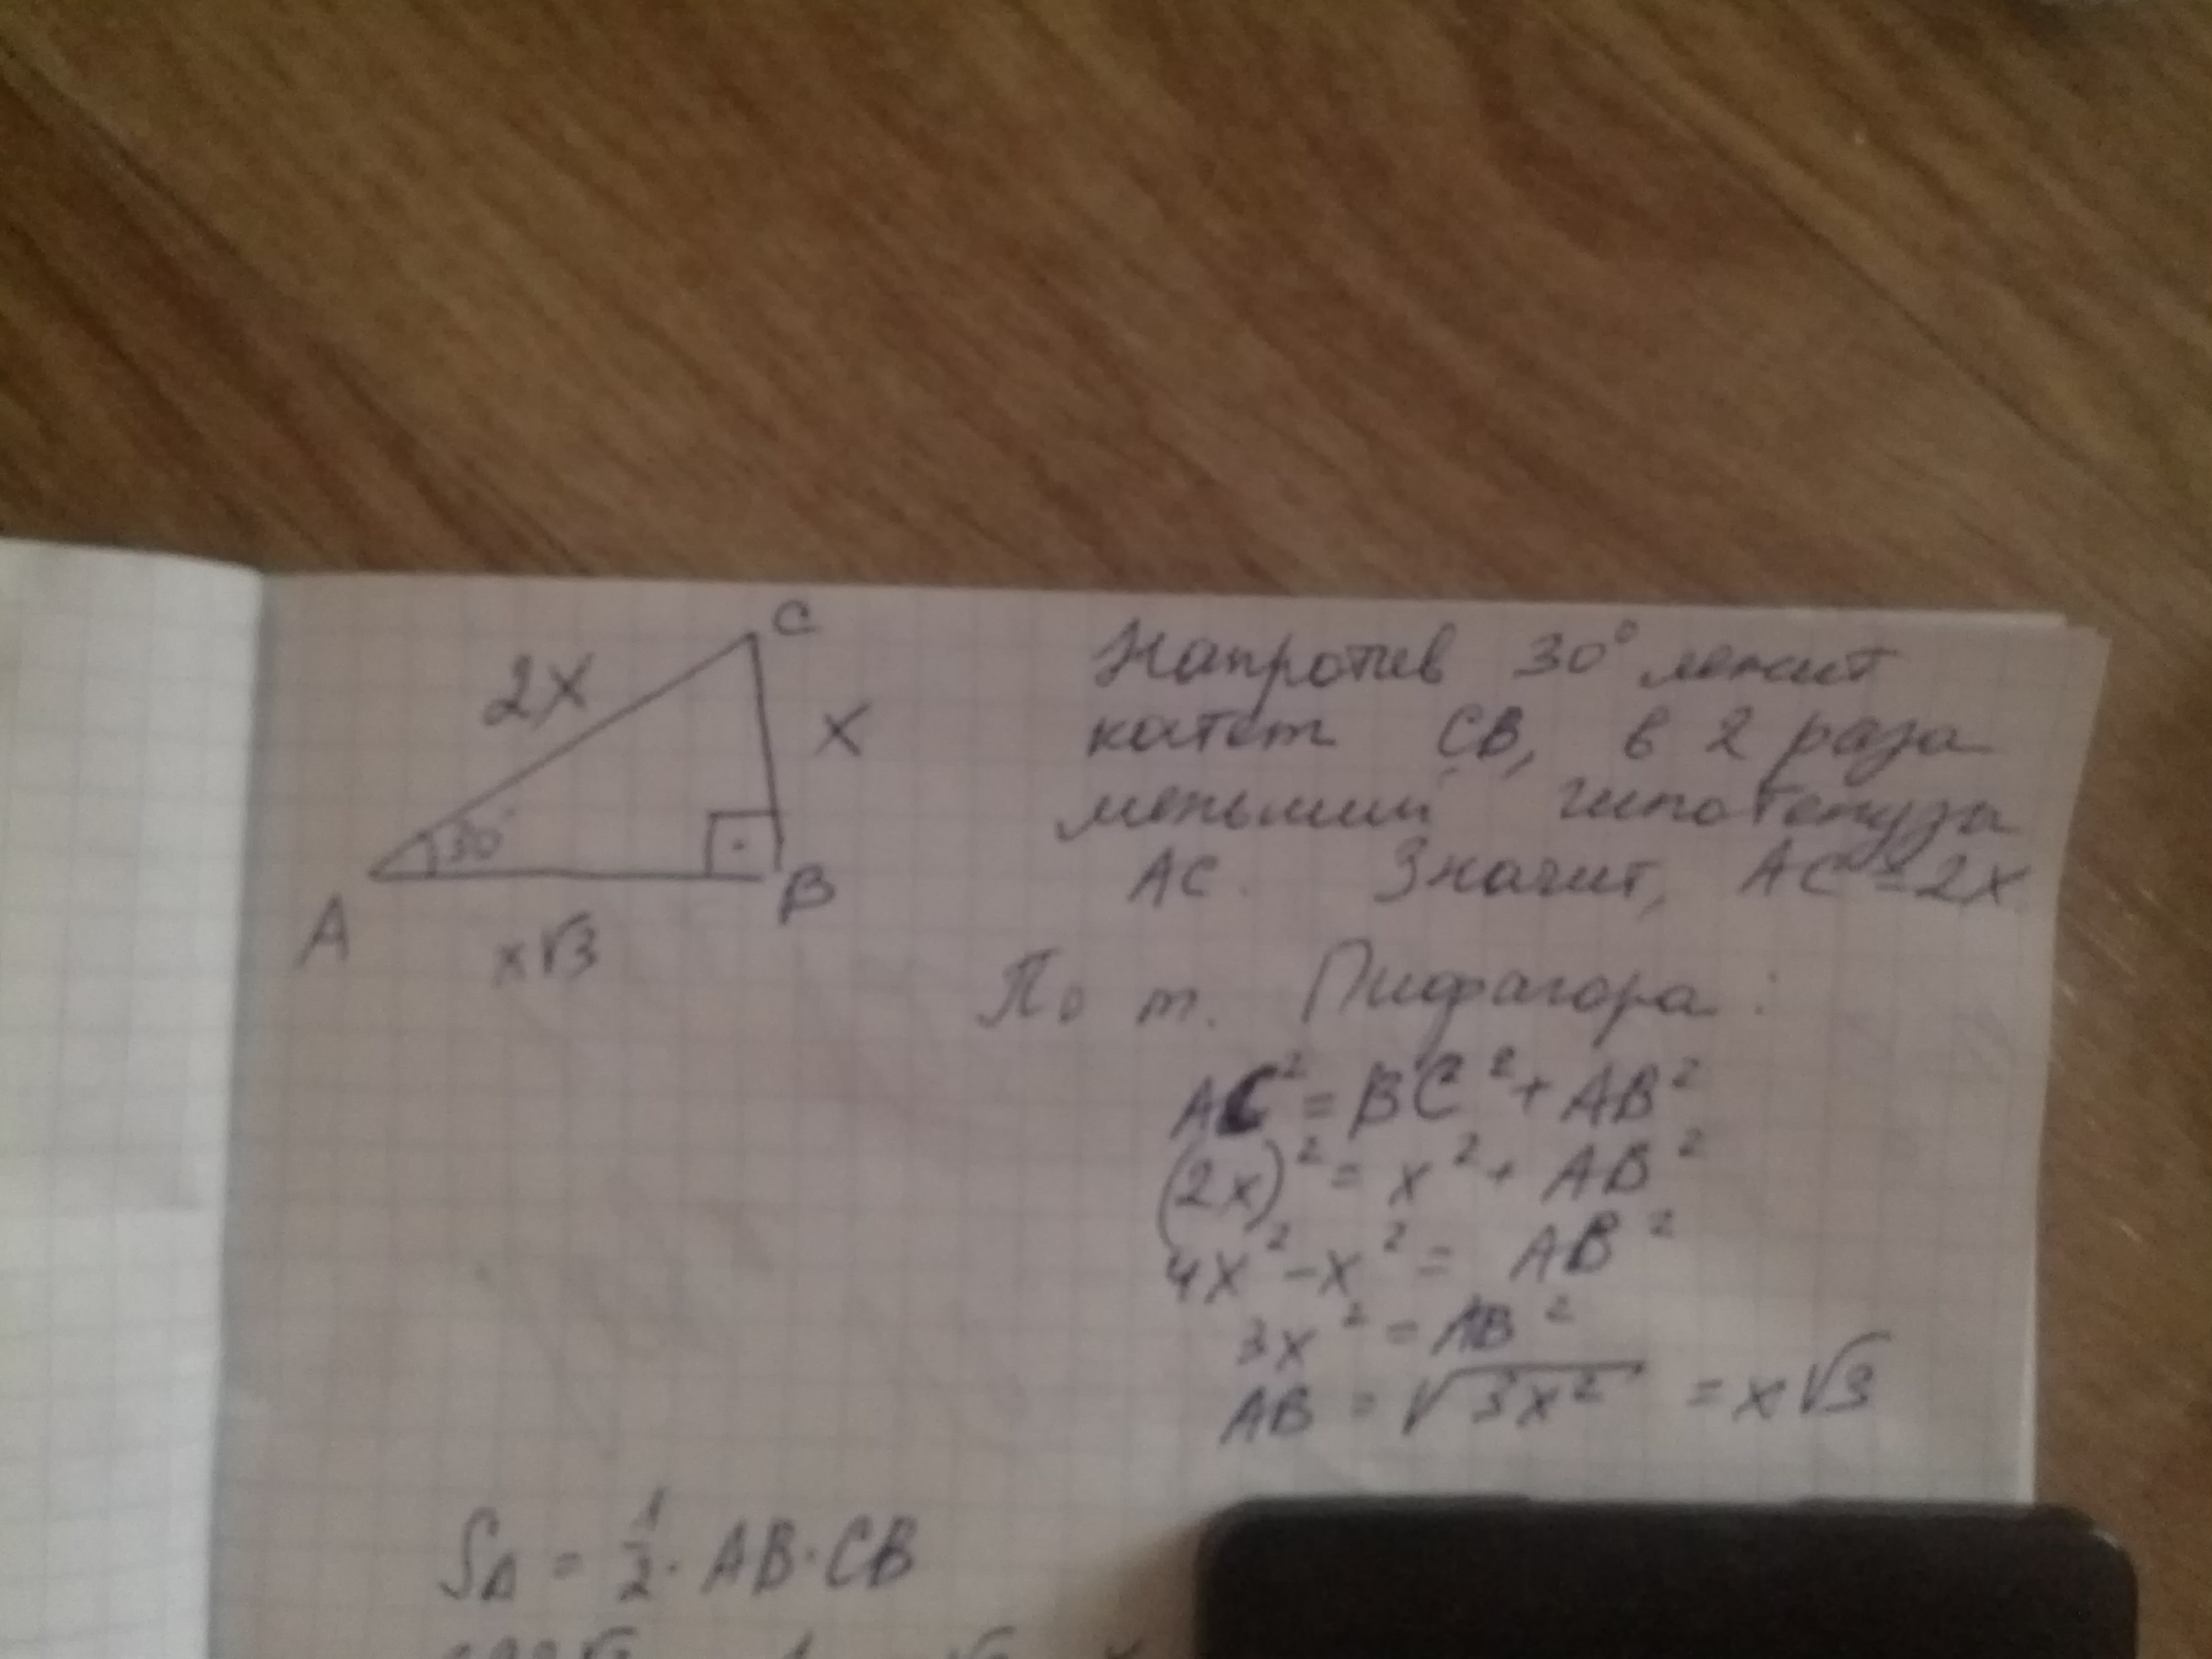 C
2x
x
30°
A
B
x√3
Напротив 30° лежит
катет CB, в 2 раза
меньший гипотенуза
AC. Значит, AC = 2x
По т. Пифагора:
AC² = BC² + AB²
(2x)² = x² + AB²
4x² - x² = AB²
3x² = AB²
AB = √3x² = x√3
S∆ = 1/2 · AB · CB